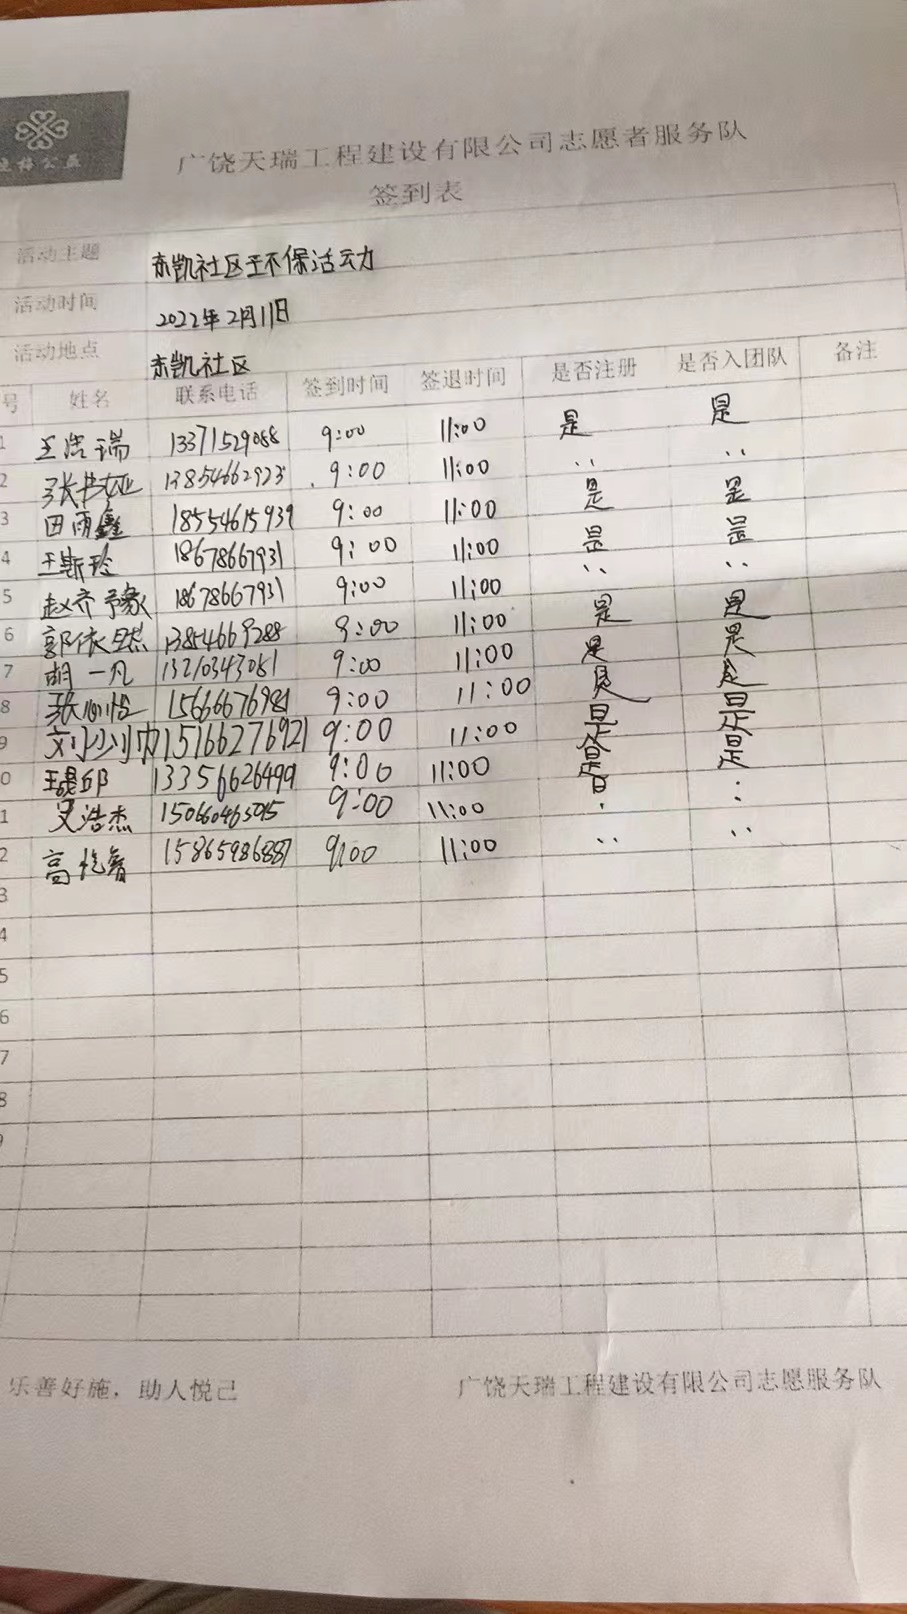 广饶天瑞工程建设有限公司志愿者服务队
签到表
活动主题 东凯社区环保活动
活动时间 2022年2月11日
活动地点 东凯社区
号 姓名 联系电话 签到时间 签退时间 是否注册 是否入团队 备注
1 王浩瑞 13371529088 9:00 11:00 是 是
2 13854662923 9:00 11:00 ‥ ‥
3 田雨鑫 18554615939 9:00 11:00 是 是
4 王斯玲 18678667931 9:00 11:00 是 是
5 赵齐予 18678667931 9:00 11:00 ‥ ‥
6 郭依然 13854669288 9:00 11:00 是 是
7 胡一凡 13210343081 9:00 11:00 是 是
8 张心怡 15666676981 9:00 11:00 是 是
9 15166276921 9:00 11:00 是 是
0 13356626499 9:00 11:00 是 是
1 浩杰 9:00 11:00
2 高 15865986887 9:00 11:00 ‥ ‥
3
4
5
6
7
8
乐善好施，助人悦己 广饶天瑞工程建设有限公司志愿服务队